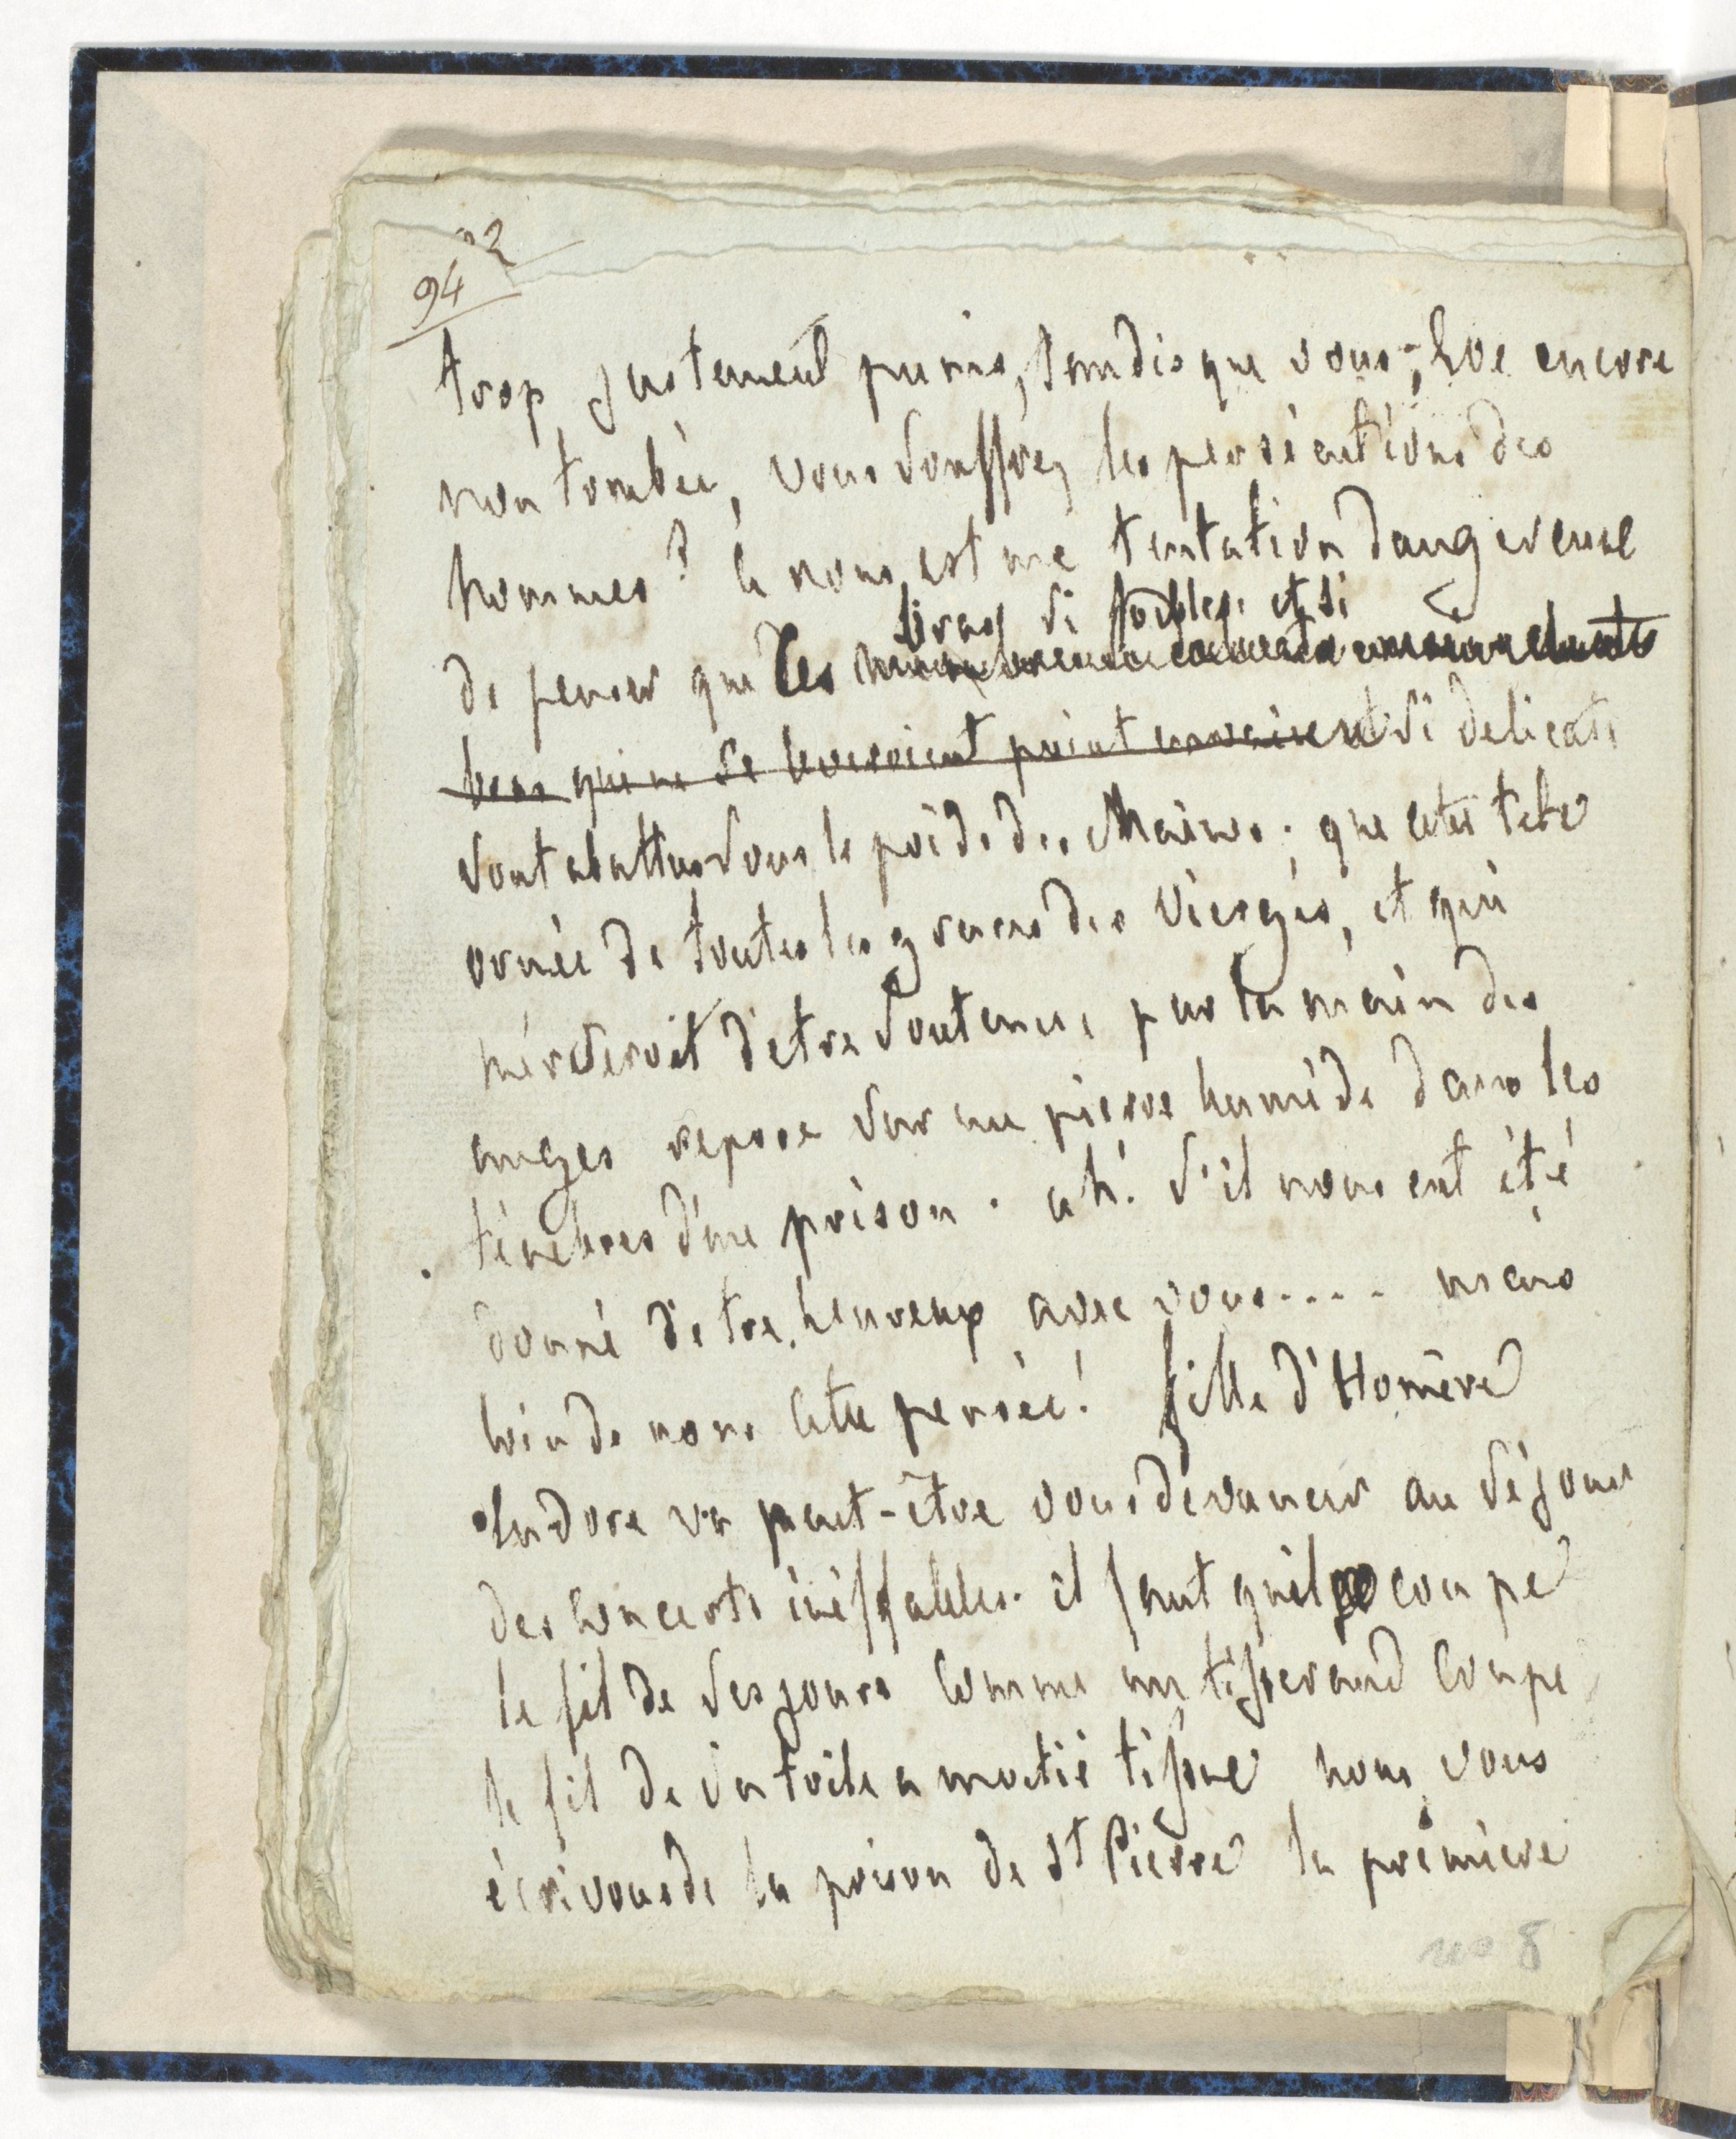 22
94
trop justement punis, tandis que vous, Eve encore
non tombée, vous souffrez les persécutions des
hommes? ce nous est une tentation dangereuse
bras si foibles et si
de penser que ces
qui ne se leveroient point si delicats
sont abattus sous le poids des chaines; que cette tete
ornée de toutes les graces des vierges, et qui
mériteroit d'etre soutenue par la main des
anges repose sur une pierre humide dans les
ténebres d'une prison. ah! s'il nous eut été
donné d'etre heureux avec vous.... mais
loin de nous cette pensée! fille d'Homère
Eudore va peut-être vous devancer au séjour
des concerts inéffables. il faut qu'il coupe
le fil de ses jours comme un tisserand coupe
le fil de sa toile a moitié tissue nous vous
écrivons de la prison de St Pierre la premiere
no 8